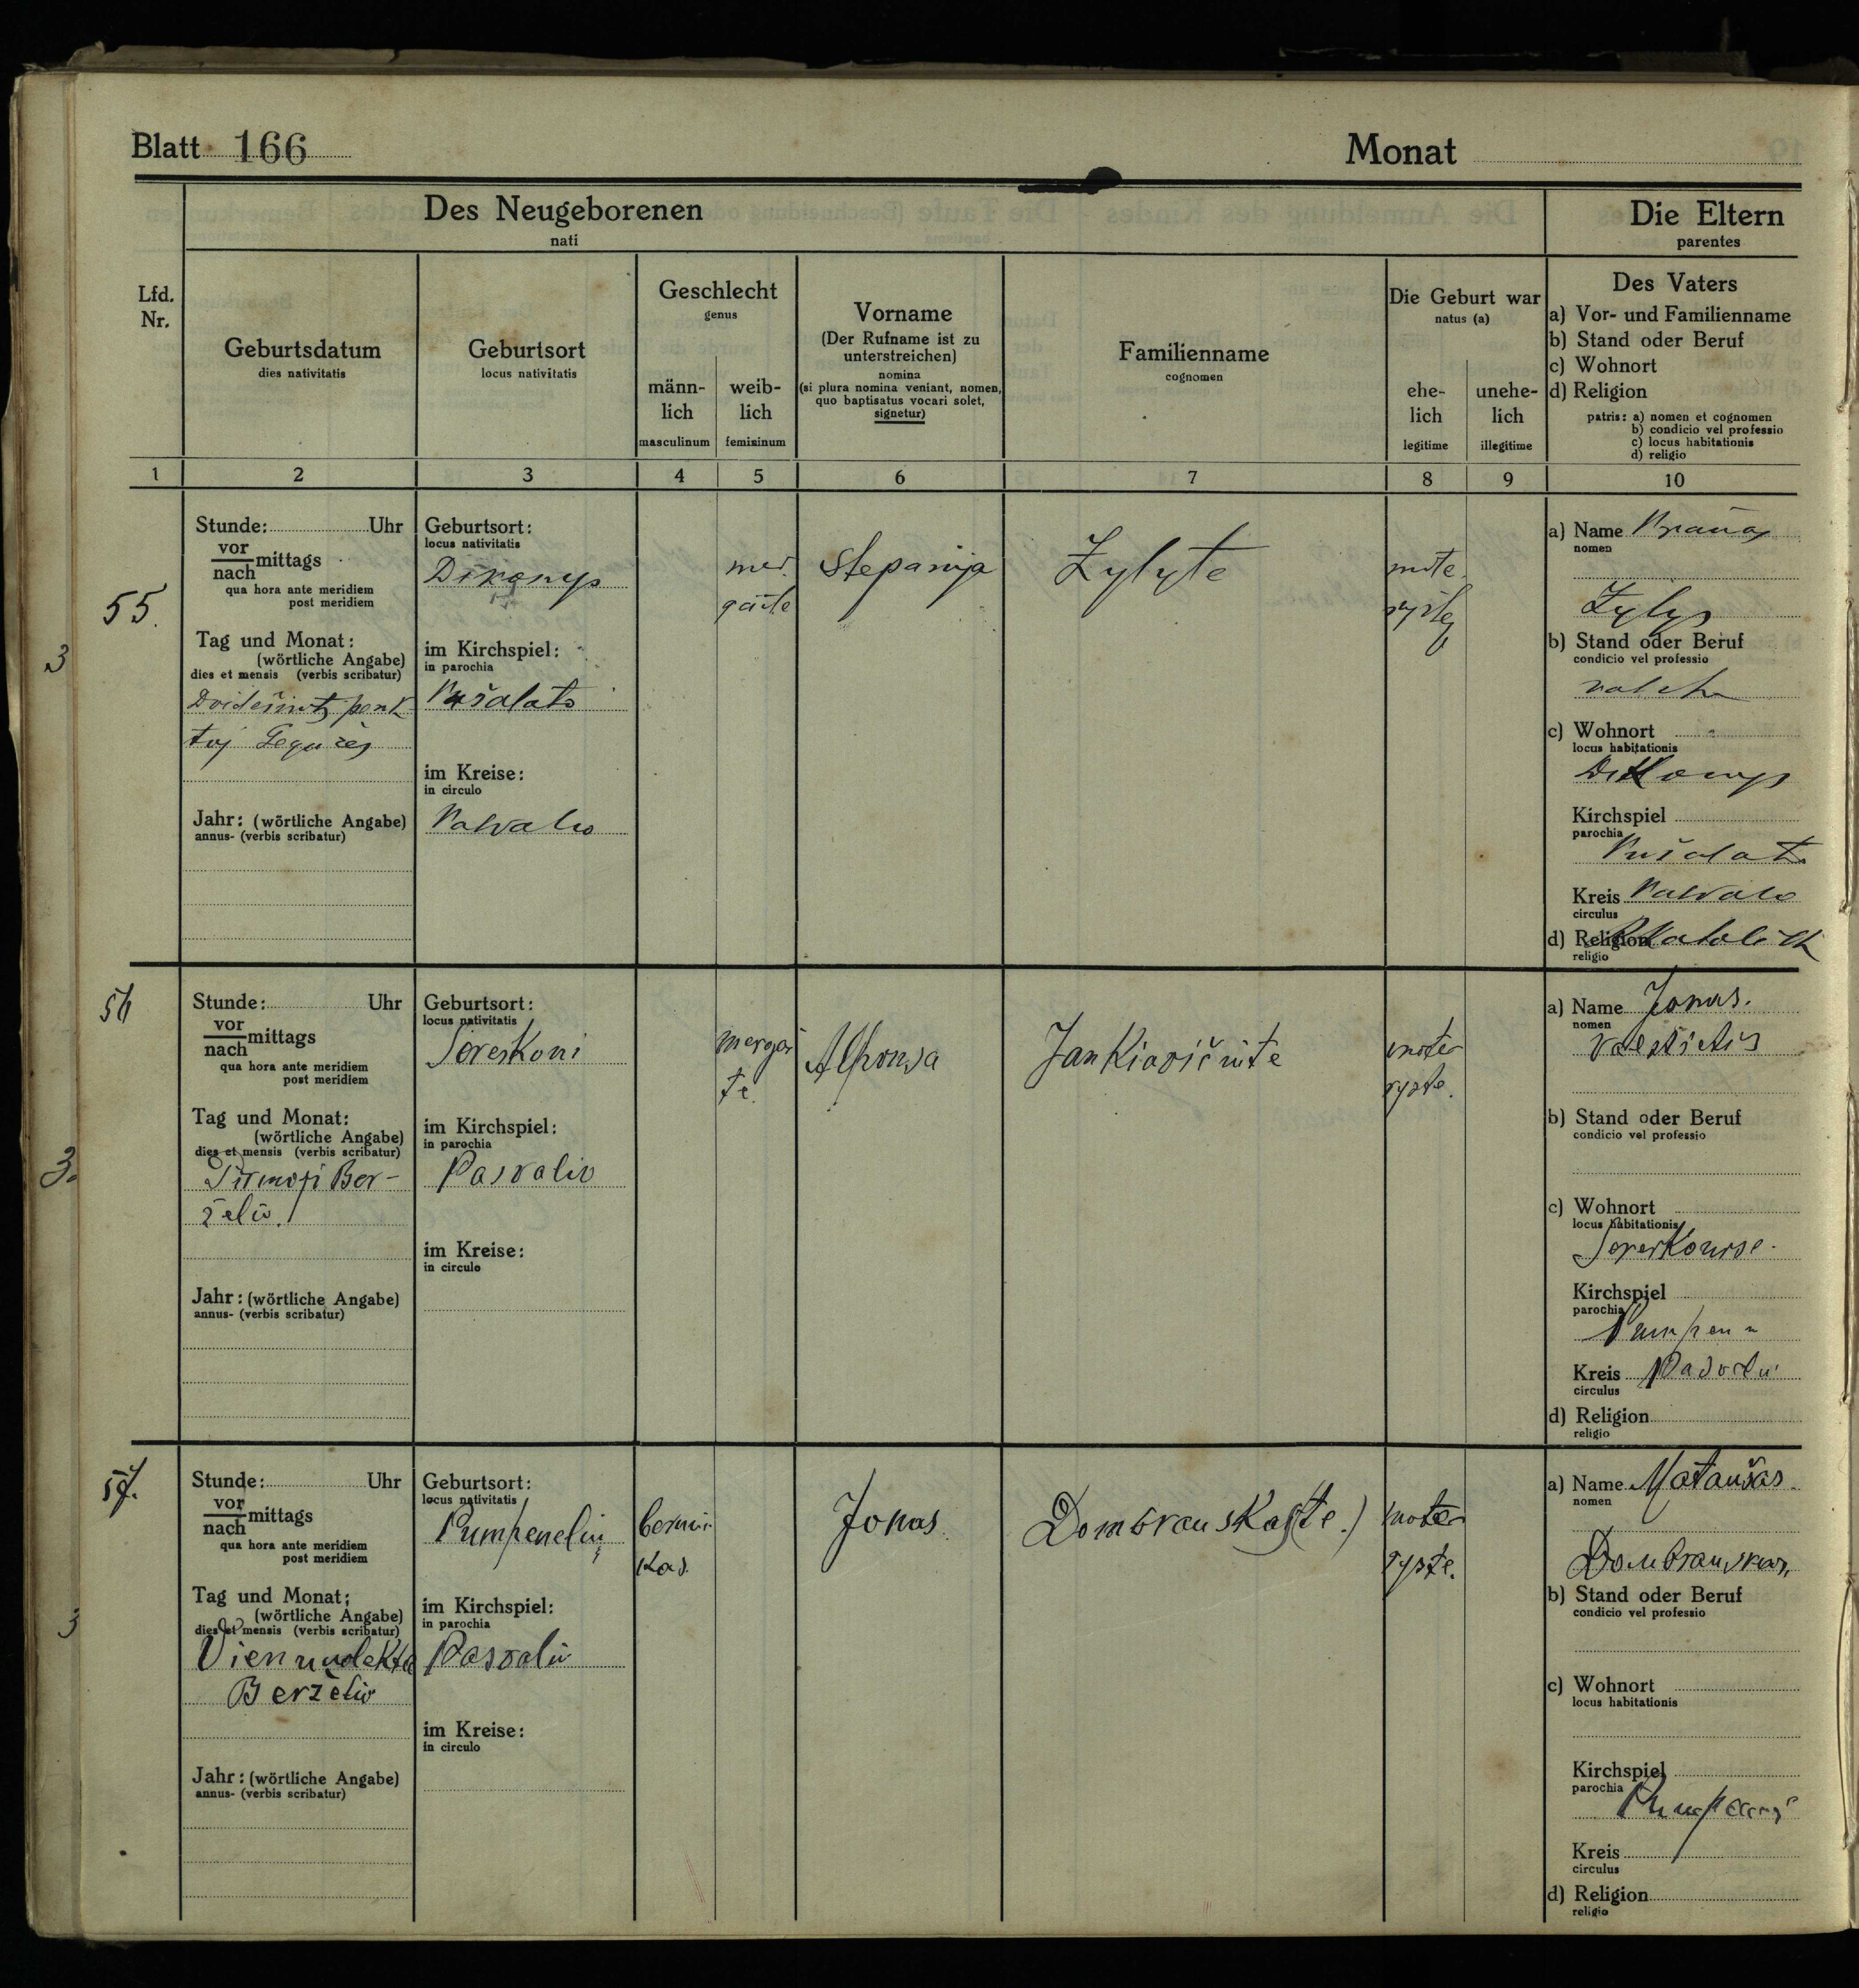 Blatt 166
Monat
Des Neugeborenen
nati
Die Eltern
parentes
Lfd.
Nr.
Geburtsdatum
dies nativitatis
Geburtsort
locus nativitatis
Geschlecht
genus
männ-
lich
masculinum
weib-
lich
femininum
Vorname
(Der Rufname ist zu
unterstreichen)
nomina
(si plura nomina veniant, nomen,
quo baptisatus vocari solet,
signetur)
Familienname
cognomen
Die Geburt war
natus (a)
ehe-
lich
legitime
unehe-
lich
illegitime
Des Vaters
a) Vor- und Familienname
b) Stand oder Beruf
c) Wohnort
d) Religion
patris: a) nomen et cognomen
b) condicio vel professio
c) locus habitationis
d) religio
1 2 3 4 5 6 7 8 9 10
55.
3
Stunde: Uhr
vor
nach mittags
qua hora ante meridiem
post meridiem
Tag und Monat:
(wörtliche Angabe)
dies et mensis (verbis scribatur)
Dvidešimtį penk
toj Gegužės
Jahr: (wörtliche Angabe)
annus- (verbis scribatur)
Geburtsort:
locus nativitatis
Dikonys
im Kirchspiel:
in parochia
Pušaloto
im Kreise:
in circulo
Pasvalio
mer.
gaite
Stepanija
Zylyte
mote
rystej
a) Name
nomen
Zylys
b) Stand oder Beruf
condicio vel professio
c) Wohnort
locus habitationis
Dikonys
Kirchspiel
parochia
Pušalot
Kreis Pasvalio
circulus
d) Religion
religio
56
3.
Stunde: Uhr
vor
nach mittags
qua hora ante meridiem
post meridiem
Tag und Monat:
(wörtliche Angabe)
dies et mensis (verbis scribatur)
Pirmoji Ber-
želio.
Jahr: (wörtliche Angabe)
annus- (verbis scribatur)
Geburtsort:
locus nativitatis
im Kirchspiel:
in parochia
Pasvalio
im Kreise:
in circulo
mergai
te.
Alfonsa
Jankiavičiute
mote
ryste.
a) Name Jonas.
nomen
b) Stand oder Beruf
condicio vel professio
c) Wohnort
locus habitationis
Kirchspiel
parochia
Pumpen
Kreis
circulus
d) Religion
religio
57.
3
Stunde: Uhr
vor
nach mittags
qua hora ante meridiem
post meridiem
Tag und Monat:
(wörtliche Angabe)
dies et mensis (verbis scribatur)
Vienuolekta
Berželio
Jahr: (wörtliche Angabe)
annus- (verbis scribatur)
Geburtsort:
locus nativitatis
Pumpenelių
im Kirchspiel:
in parochia
Pasvalio
im Kreise:
in circulo
berniu
kas.
Jonas
Dombrauskas(te.)
mote
ryste.
a) Name Mataušas
nomen
Dombrauskas,
b) Stand oder Beruf
condicio vel professio
c) Wohnort
locus habitationis
Kirchspiel
parochia
Kreis
circulus
d) Religion
religio